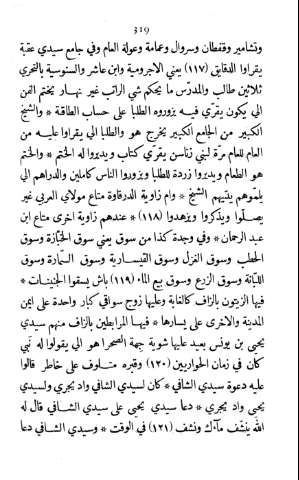 ٣١٩
وتشامير وقفطان وسروال وعمامة وعولة العام وفي جامع سيدي عقبة
يقراوا الدقايق (١١٧) يعني الاجرومية وابن عاشر والسنوسية بالتحري
ثلاثين طالب والمدرّس ما يحكم شي الراتب غير نهار يختم الفن
الي يكون يقرّي فيه يزوروه الطلبا على حساب الطاقة * والشيخ
الكبير من الجامع الكبير يخرج هو والطلبا الي يقراوا عليه من
العام للعام مرّة لبني زناسن يقري كتاب ويديروا له الختم * والختم
هو الطعام ويديروا زردة للطلبا ويزوروا الناس كاملين والدراهم الي
يلمّوهم يتيهم الشيخ * وام زاوية الدرقاوة متاع مولاي العربي غير
يصلّوا ويذكروا ويزهدوا (١١٨) * عندهم زاوية اخرى متاع ابن
عبد الرحمان * وفي وجدة كذا من سوق يعني سوق الخبّازة وسوق
الحطب وسوق الغزل وسوق القيسارية وسوق السمّارة وسوق
اللبّانة وسوق الزرع وسوق بيع الماء (١١٩) باش يسقوا الجنينات *
فيها الزيتون بالزاف كالغابة وعليها زوج سواقي كبار واحدة على ايمن
المدينة والاخرى على يسارها * فيها المرابطين بالزاف منهم سيدي
يحيى بن يونس بعيد عليها شوية جهة الصحرا هو الي يقولوا له نبي
كان في زمان الحواريين (١٢٠) وقبره متلوف على خاطر قالوا
عليه دعوة سيدي الشافي * كان لسيدي الشافي واد يجري ولسيدي
يحيى واد يجري * دعا سيدي يحيى على سيدي الشافي قال له
الله ينشّف مآك ونشف (١٢١) في الوقت * وسيدي الشافي دعا